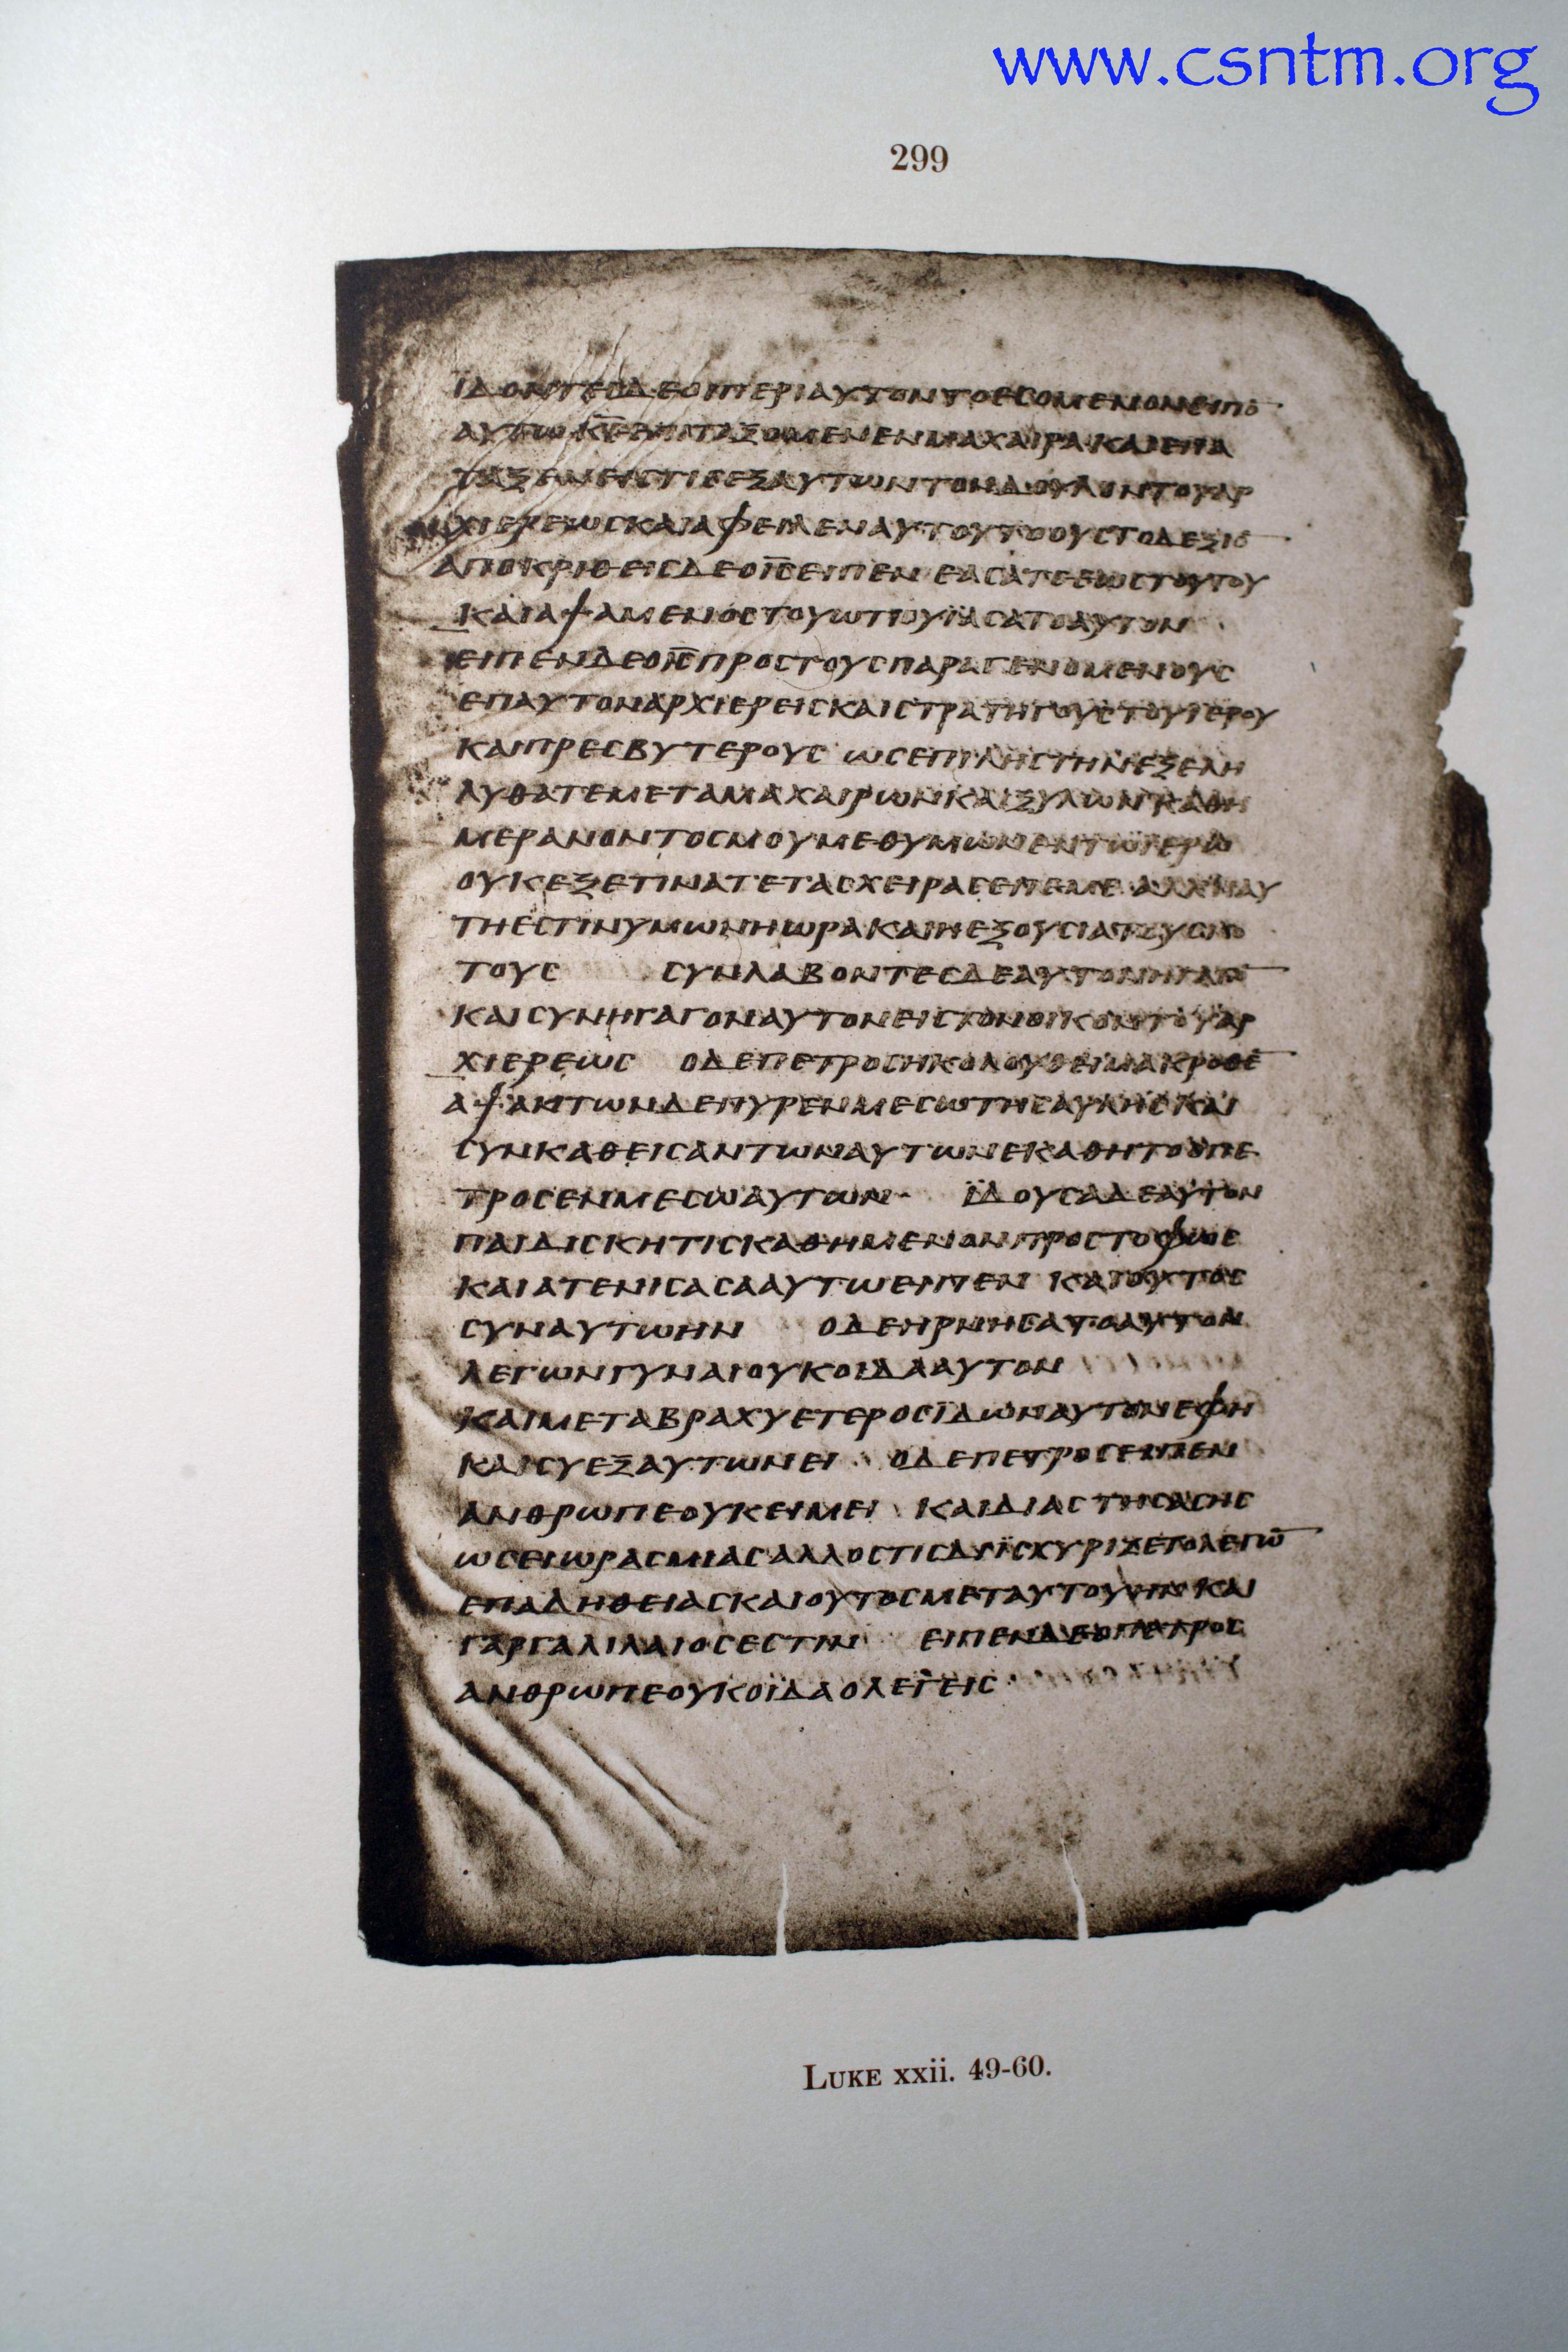 www.csntm.org
299
ΪΔΟΝΤΕCΔΕΟΙΠΕΡΙΑΥΤΟΝΤΟΕCΟΜΕΝΟΝΕΙΠΟ̅
ΑΥΤΩΚ̅Ε̅ΕΙΠΑΤΑΞΟΜΕΝΕΝΜΑΧΑΙΡΑΚΑΙΕΠΑ
ΤΑΞΕΝΕΙCΤΙCΕΞΑΥΤΩΝΤΟΝΔΟΥΛΟΝΤΟΥΑΡ
ΧΙΕΡΕΩCΚΑΙΑΦΕΙΛΕΝΑΥΤΟΥΤΟΟΥCΤΟΔΕΞΙΟ̅
ΑΠΟΚΡΙΘΕΙCΔΕΟΙ̅C̅ΕΙΠΕΝ ΕΑCΑΤΕΕΩCΤΟΥΤΟΥ
ΚΑΙΑΨΑΜΕΝΟCΤΟΥΩΤΙΟΥΪΑCΑΤΟΑΥΤΟΝ
ΕΙΠΕΝΔΕΟΙ̅C̅ΠΡΟCΤΟΥCΠΑΡΑΓΕΝΟΜΕΝΟΥC
ΕΠΑΥΤΟΝΑΡΧΙΕΡΕΙCΚΑΙCΤΡΑΤΗΓΟΥCΤΟΥΪΕΡΟΥ
ΚΑΙΠΡΕCΒΥΤΕΡΟΥC ΩCΕΠΙΛΗCΤΗΝΕΞΕΛΗ
ΛΥΘΑΤΕΜΕΤΑΜΑΧΑΙΡΩΝΚΑΙΞΥΛΩΝΚΑΘΗ
ΜΕΡΑΝΟΝΤΟCΜΟΥΜΕΘΥΜΩΝΕΝΤΩΪΕΡΩ
ΟΥΚΕΞΕΤΙΝΑΤΕΤΑCΧΕΙΡΑCΕΠΕΜΕ ΑΛΛΑΥ
ΤΗΕCΤΙΝΥΜΩΝΗΩΡΑΚΑΙΗΕΞΟΥCΙΑΤΟΥCΚΟ
ΤΟΥC CΥΝΛΑΒΟΝΤΕCΔΕΑΥΤΟΝΗΓΑΓΟ̅
ΚΑΙCΥΝΗΓΑΓΟΝΑΥΤΟΝΕΙCΤΟΝΟΙΚΟΝΤΟΥΑΡ
ΧΙΕΡΕΩC ΟΔΕΠΕΤΡΟCΗΚΟΛΟΥΘΕΙΜΑΚΡΟΘΕ̅
ΑΨΑΝΤΩΝΔΕΠΥΡΕΝΜΕCΩΤΗCΑΥΛΗCΚΑΙ
CΥΝΚΑΘΕΙCΑΝΤΩΝΑΥΤΩΝΕΚΑΘΗΤΟΟΠΕ
ΤΡΟCΕΝΜΕCΩΑΥΤΩΝ ΪΔΟΥCΑΔΕΑΥΤΟΝ
ΠΑΙΔΙCΚΗΤΙCΚΑΘΗΜΕΝΟΝΠΡΟCΤΟΦΩC
ΚΑΙΑΤΕΝΙCΑCΑΑΥΤΩΕΙΠΕΝ ΚΑΙΟΥΤΟC
CΥΝΑΥΤΩΗΝ ΟΔΕΗΡΝΗCΑΤΟΑΥΤΟΝ
ΛΕΓΩΝΓΥΝΑΙΟΥΚΟΙΔΑΑΥΤΟΝ
ΚΑΙΜΕΤΑΒΡΑΧΥΕΤΕΡΟCΪΔΩΝΑΥΤΟΝΕΦΗ
ΚΑΙCΥΕΞΑΥΤΩΝΕΙ ΟΔΕΠΕΤΡΟCΕΙΠΕΝ
ΑΝΘΡΩΠΕΟΥΚΕΙΜΕΙ ΚΑΙΔΙΑCΤΗCΑCΗC
ΩCΕΙΩΡΑCΜΙΑCΑΛΛΟCΤΙCΔΥΪCΧΥΡΙΖΕΤΟΛΕΓΩ̅
ΕΠΑΛΗΘΕΙΑCΚΑΙΟΥΤΟCΜΕΤΑΥΤΟΥΗΝΚΑΙ
ΓΑΡΓΑΛΙΛΑΙΟCΕCΤΙΝ ΕΙΠΕΝΔΕΟΠΕΤΡΟC
ΑΝΘΡΩΠΕΟΥΚΟΪΔΑΟΛΕΓΕΙC
LUKE xxii. 49-60.